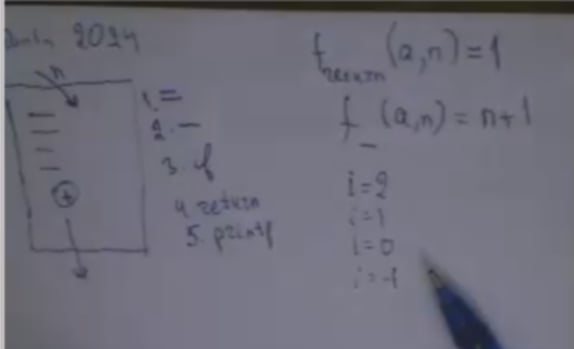 2024
n
1. =
2. —
3. if
4. return
5. printf
f return (a,n) = 1
f – (a,n) = n+1
i=2
i=1
i=0
i=-1